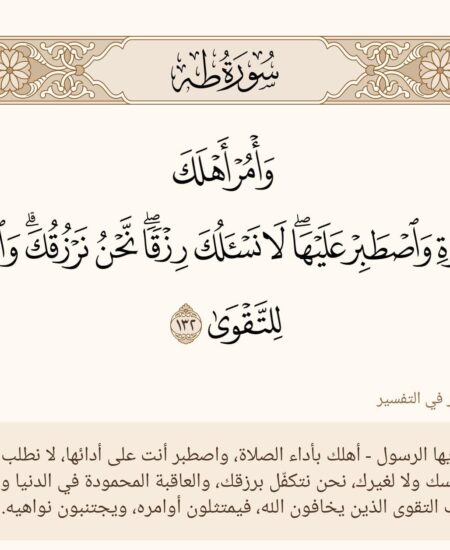 سُورَةُ طه
وَأْمُرْ أَهْلَكَ
وَٱصْطَبِرْ عَلَيْهَاۖ لَا نَسْـَٔلُكَ رِزْقٗاۖ نَّحْنُ نَرْزُقُكَۗ
لِلتَّقْوَىٰ ١٣٢
في التفسير
الرسول - أهلك بأداء الصلاة، واصطبر أنت على أدائها، لا نطلب
ولا لغيرك، نحن نتكفّل برزقك، والعاقبة المحمودة في الدنيا و
التقوى الذين يخافون الله، فيمتثلون أوامره، ويجتنبون نواهيه.